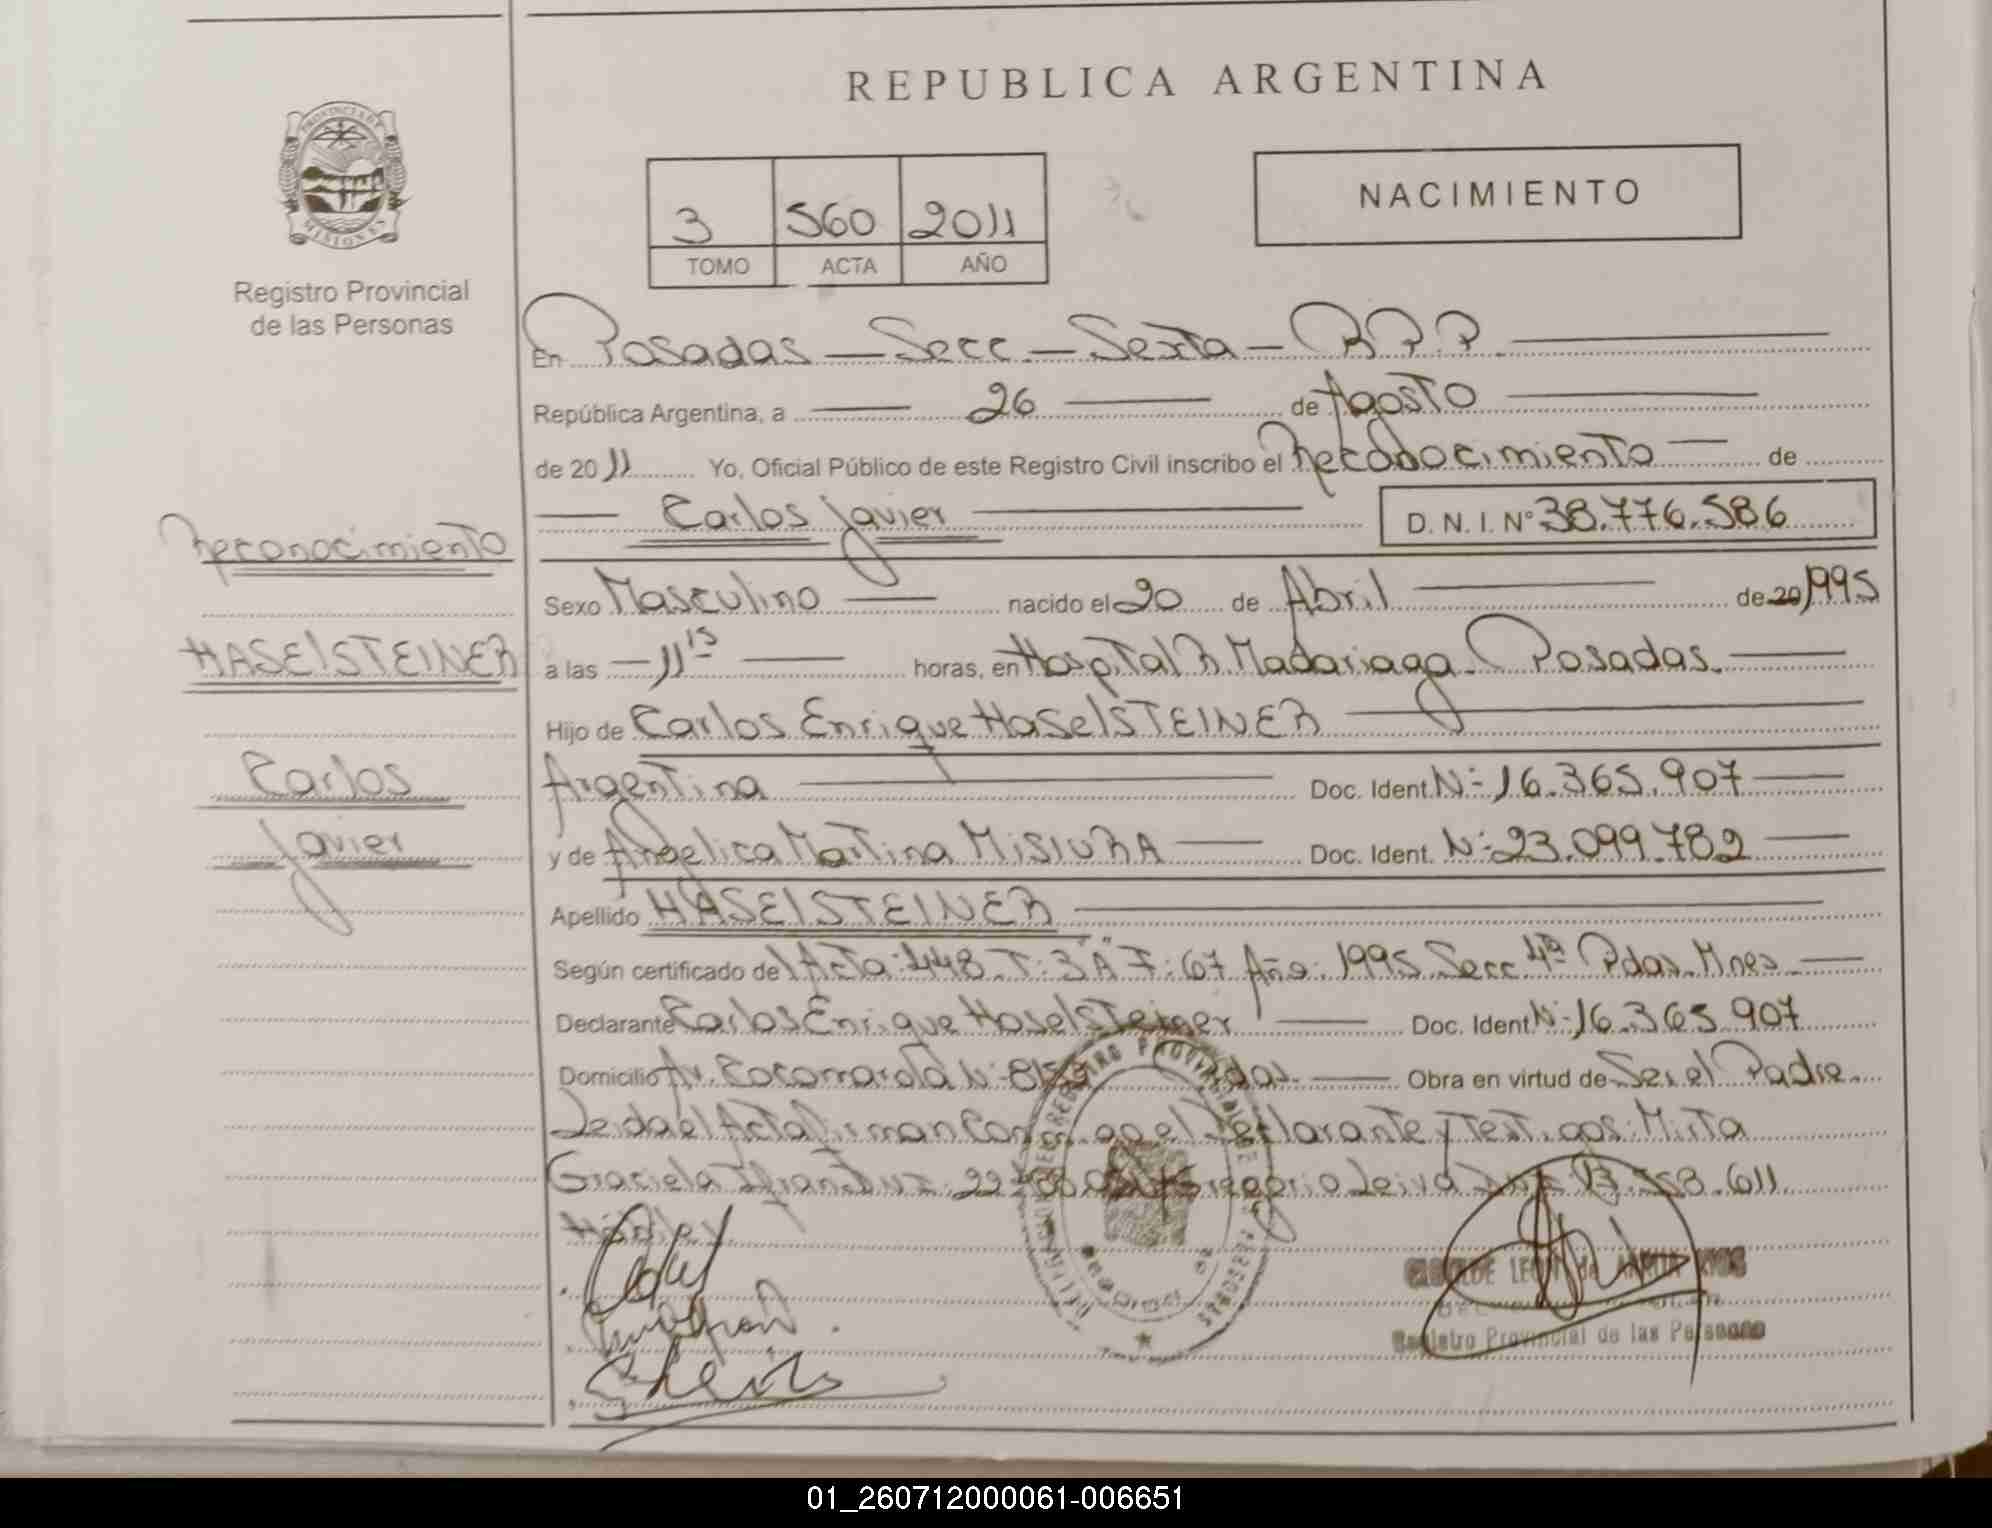 REPUBLICA ARGENTINA
PROVINCIA DE
MISIONES
Registro Provincial
de las Personas
3 560 2011
TOMO ACTA AÑO
NACIMIENTO
En Posadas — Secc — Sexta — R.P.P.
República Argentina, a 26 de Agosto
de 2011 Yo, Oficial Público de este Registro Civil inscribo el Reconocimiento de
Carlos Javier D.N.I. Nº 38.776.586
Reconocimiento
HASELSTEINER
Carlos
Javier
Sexo Masculino nacido el 20 de Abril de 20 1995
a las 11 15 horas, en Hospital R. Madariaga Posadas.
Hijo de Carlos Enrique HASELSTEINER
Argentina Doc. Ident. Nº 16.365.907
y de Angelica Martina MISIURA Doc. Ident. Nº 23.099.782
Apellido HASELSTEINER
Según certificado del Acta: 448 T: 3 "A" F: 67 Año: 1995 Secc 4ª Pdas. Mnes
Declarante Carlos Enrique Haselsteiner Doc. Ident Nº 16.365.907
Domicilio Av. Cocomarola Nº Obra en virtud de Ser el Padre
Leida el Acta firman conmigo el Declarante y Testigos: Mirta
Graciela Leiva 611
Registro Provincial de las Personas
01_260712000061-006651